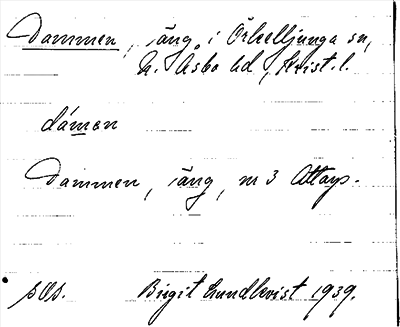 Dammen, äng, i Örkelljunga sn,
N. Åsbo hd, Krist. l.
dámen
Dammen, äng, nr 3 Attarp.
SOS. Birgit Lundkvist 1939.